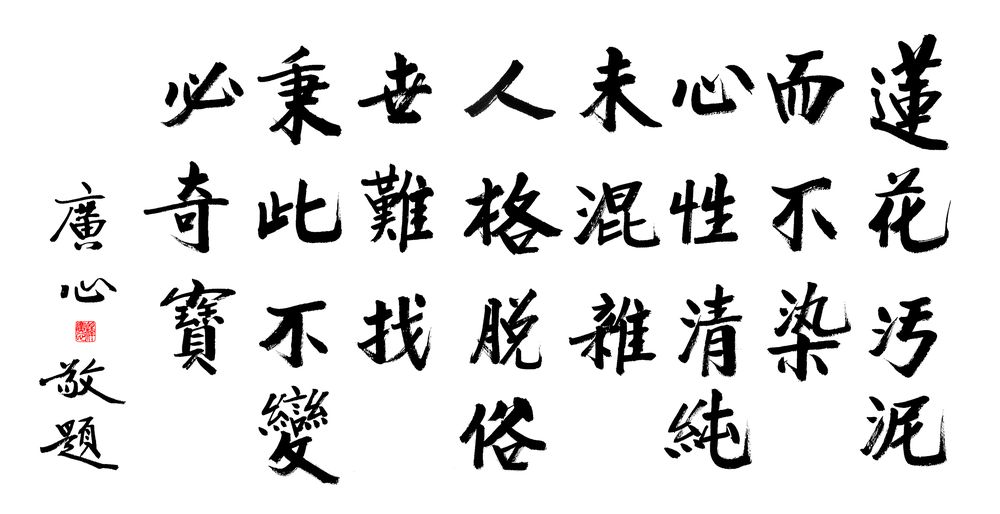 蓮花污泥
而不染
心性清純
未混雜
人格脱俗
世難找
秉此不變
必奇寶
廣心敬題